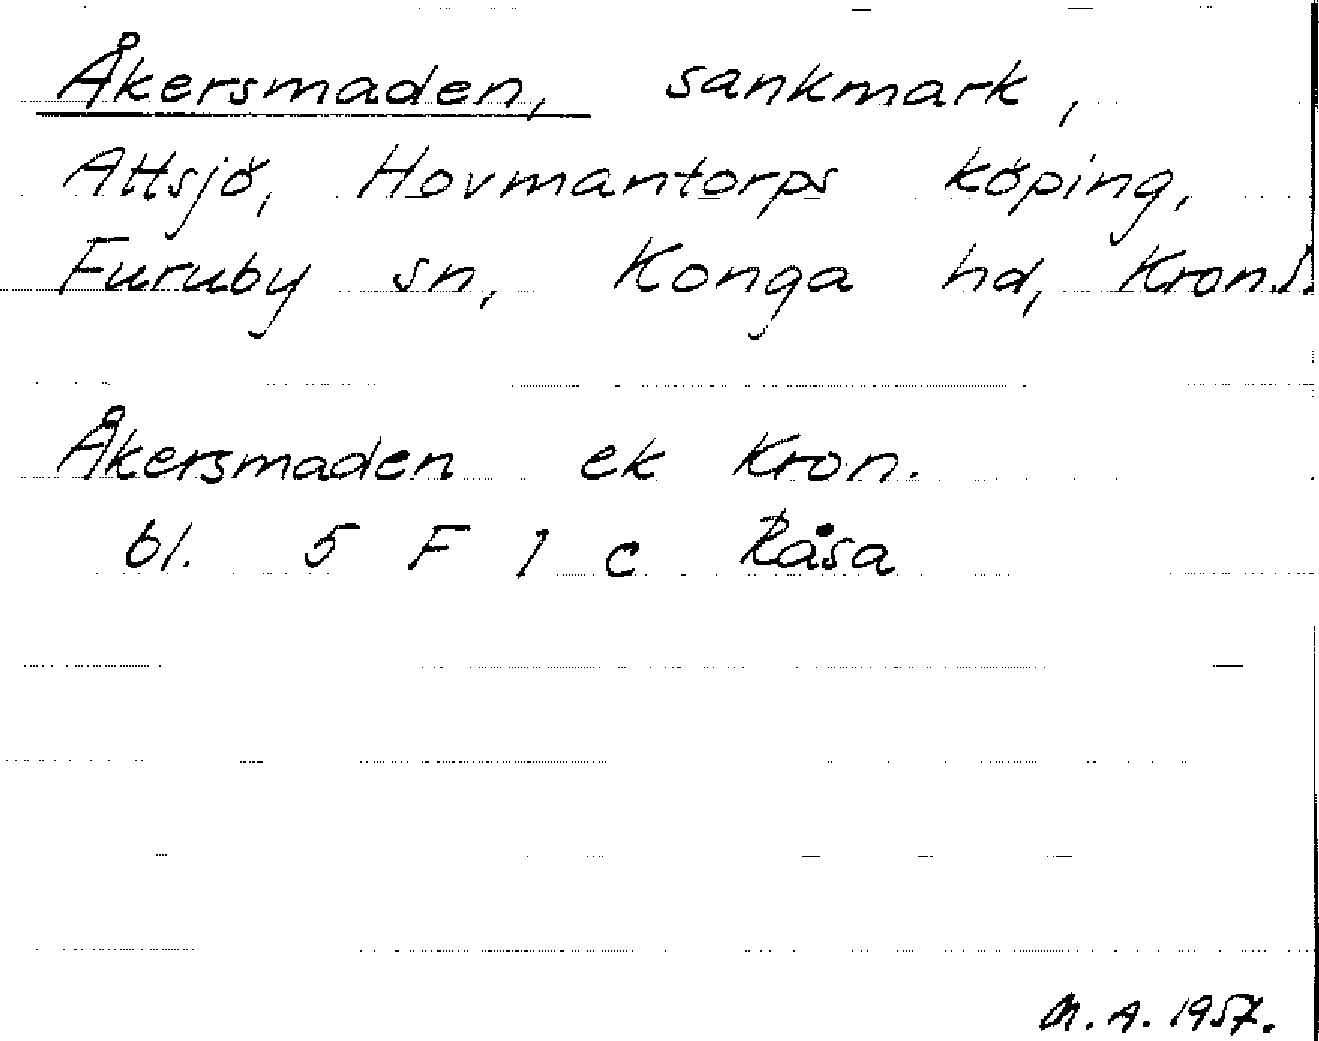 Åkersmaden, sankmark,
Attsjö, Hovmantorps köping,
Furuby sn, Konga hd, Kron.l.
Åkersmaden ek Kron.
bl. 5 F 1 c Råsa
M. A. 1957.